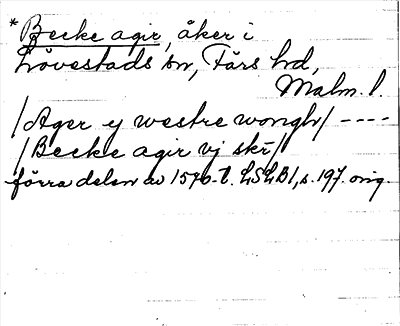 *Becke agir, åker i
Lövestads sn, Färs hd,
Malm. l.
/Ager y westre wongh/ ----
/Becke agir vj skr/
förra delen av 1570-t. LSLB1, s. 197. orig.